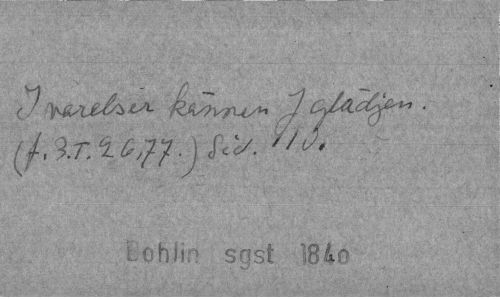 I varelser kännen I glädjen.
(f. 3.T. 26,77.) Sid. 110.
Bohlin sgst 1840